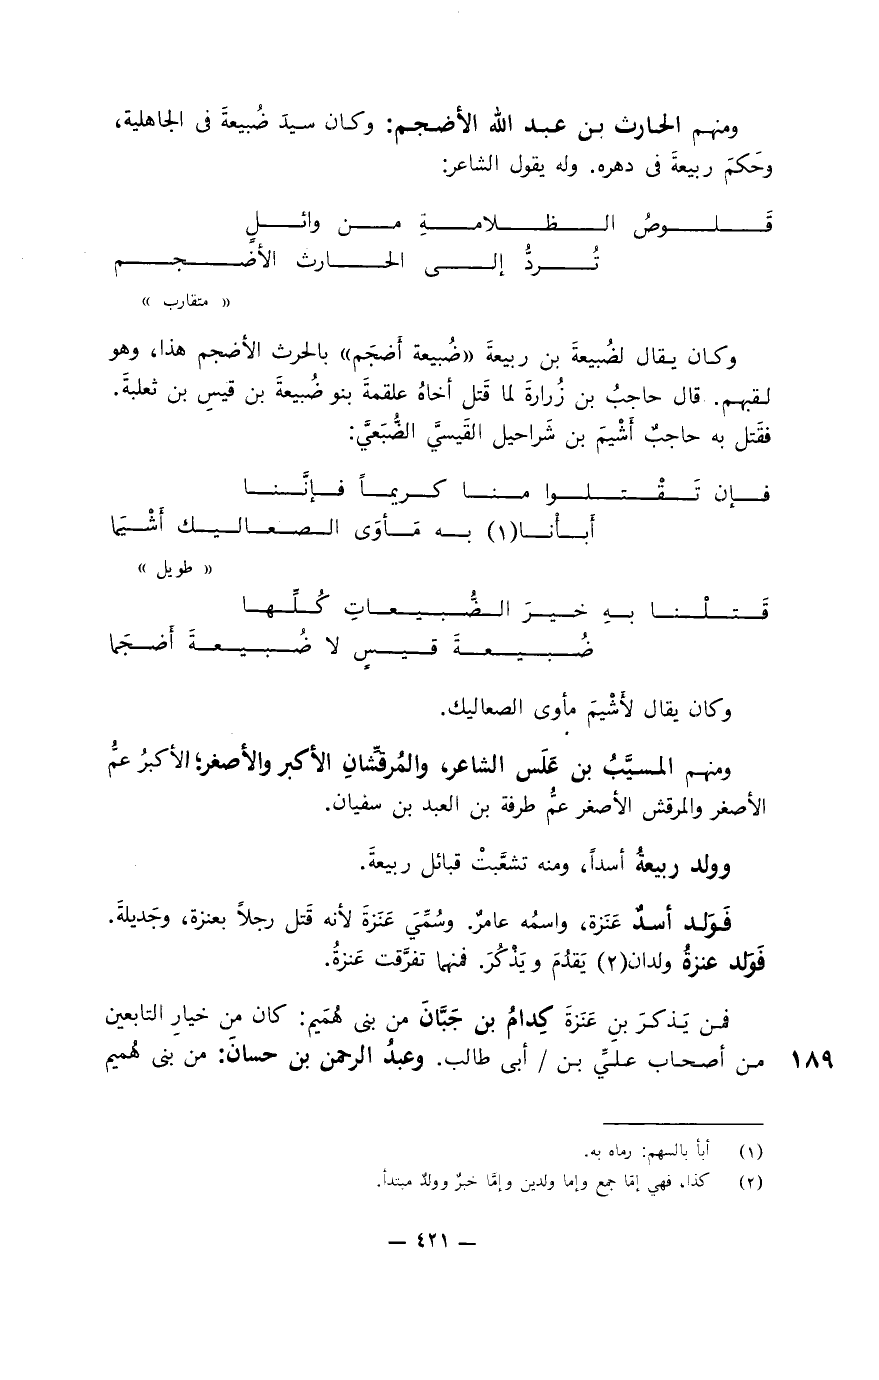 ومنهم الحارث بن عبد الله الأضجم: وكان سيدَ ضُبيعةَ فى الجاهلية،
وحَكمَ ربيعةَ فى دهره. وله يقول الشاعر:
قَلوصُ الظلامةِ من وائلٍ
تُردُّ إلى الحارث الأضجم
« متقارب »
وكان يقال لضُبيعةَ بن ربيعةَ «ضُبيعة أضجَم» بالحرث الأضجم هذا، وهو
لقبهم. قال حاجبُ بن زُرارةَ لما قَتل أخاهُ علقمةَ بنو ضُبيعةَ بن قيسِ بن ثعلبةَ.
فقَتل به حاجبٌ أَشْيمَ بن شَراحيل القَيسيَّ الضُّبَعيَّ:
فإن تَقْتلوا منا كريماً فإنَّنا
أَبأْنا(١) به مَأوَى الصعاليك أَشْيَما
« طويل »
قَتلْنا بهِ خيرَ الضُّبيعاتِ كُلِّها
ضُبيعةَ قيسٍ لا ضُبيعةَ أضجَما
وكان يقال لأَشْيمَ مأوى الصعاليك.
ومنهم المسيَّبُ بن عَلَس الشاعر، والمُرقِّشانِ الأكبر والأصغر؛ الأكبرُ عمُّ
الأصغر والمرقش الأصغر عمُّ طرفة بن العبد بن سفيان.
وولد ربيعةُ أسداً، ومنه تشعَّبتْ قبائل ربيعةَ.
فَوَلد أسدٌ عَنَزة، واسمُه عامرٌ. وسُمِّيَ عَنَزةَ لأنه قَتل رجلاً بعنزة، وجَديلةَ.
فَوَلد عنزةُ ولدان(٢) يَقدُمَ ويَذْكُرَ. فمنهما تفرَّقت عَنزةُ.
فمن يَذكرَ بنِ عَنَزةَ كِدامُ بن حَبَّانَ من بنى هُمَيم: كان من خيارِ التابعين
من أصحاب عليِّ بن / أبى طالب. وعبدُ الرحمن بن حسانَ: من بنى هُميم ١٨٩
(١) أبأ بالسهم: رماه به.
(٢) كذا، فهي إمّا جمع وإما ولدين وإمَّا خبرٌ وولدٌ مبتدأ.
— ٤٢١ —